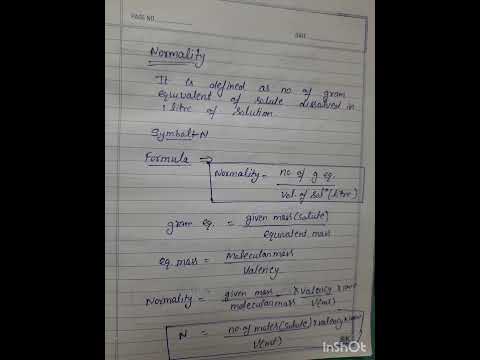 PAGE NO.
DATE
Normality
It is defined as no of gram
equivalent of solute dissolved in
1 litre of solution
Symbol → N
Formula ⇒
Normality = no of g eq. / Vol. of Solⁿ (litre)
gram eq. = given mass (solute) / equivalent mass
eq. mass = Molecular mass / Valency
Normality = given mass / molecular mass × valency / V(ml) × 1000
N = no of moles (solute) × valency × 1000 / V(ml)
InShOt